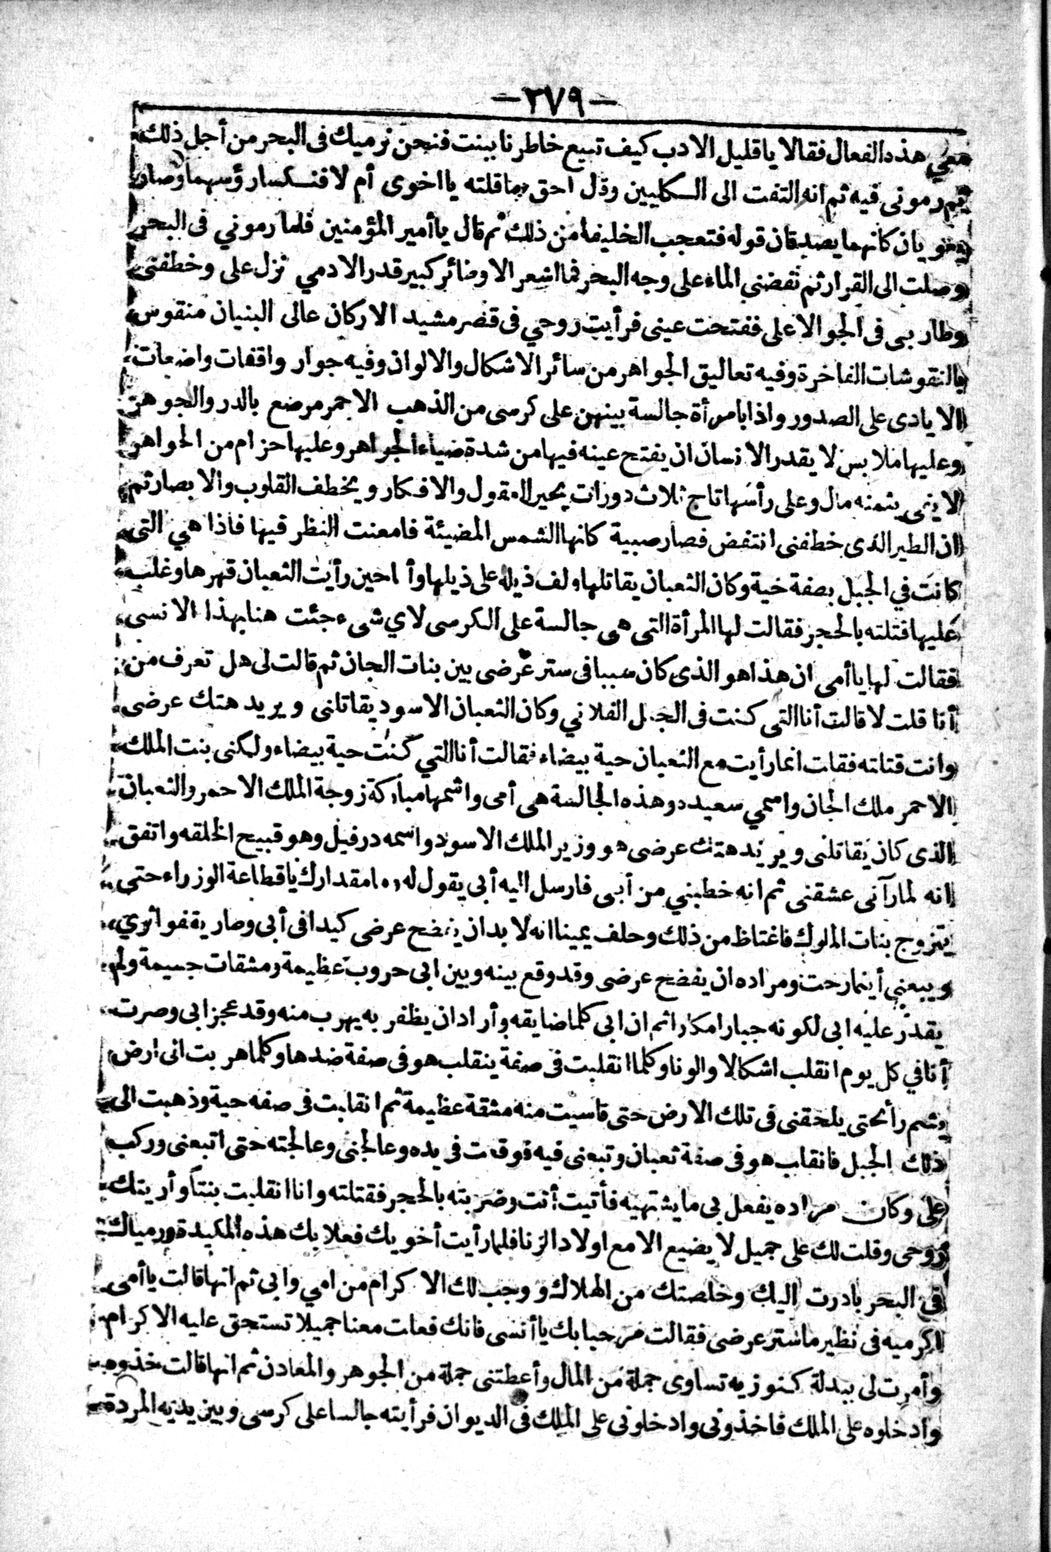 -٣٧٩-
معي هذه الفعال فقالا يا قليل الادب كيف تبيع خاطرنا ببنت فنحن نرميك فى البحر من أجل ذلك
ثم رمونى فيه ثم انه التفت الى الكلبين وقال احق ما قلته يا اخوى أم لا فنكسا رؤسهما وصارا
يعويان كانهما يصدقان قوله فتعجب الخليفة من ذلك ثم قال يا أمير المؤمنين فلما رموني فى البحر
وصلت الى القرار ثم نفضنى الماء على وجه البحر فما اشعر الا وضائر كبير قدر الادمي نزل على وخطفنى
وطار بى فى الجو الاعلى ففتحت عينى فرأيت روحي فى قصر مشيد الاركان عالى البنيان منقوس
بالنقوشات الفاخرة وفيه تعاليق الجواهر من سائر الاشكال والالوان وفيه جوار واقفات واضعات
الايادى على الصدور واذا بامرأة جالسة بينهن على كرسى من الذهب الاحمر مرضع بالدر والجوهر
وعليها ملابس لا يقدر الانسان ان يفتح عينه فيها من شدة ضياء الجواهر وعليها حزام من الجواهر
لا يفى بثمنه مال وعلى رأسها تاج ثلاث دورات يحير العقول والافكار ويخطف القلوب والابصار ثم
ان الطير الذى خطفنى انتفض فصار صبية كانها الشمس المضيئة فامعنت النظر فيها فاذا هي التى
كانت في الجبل بصفة حية وكان الثعبان يقاتلها ولف ذيله على ذيلها وأنا حين رأيت الثعبان قهرها وغلب
عليها قتلته بالحجر فقالت لها المرأة التى هى جالسة على الكرسى لاي شىء جئت هنا بهذا الانسى
فقالت لها يا أمى ان هذا هو الذى كان سببا فى ستر عرضى بين بنات الجان ثم قالت لى هل تعرف من
أنا قلت لا قالت أنا التى كنت فى الجبل الفلاني وكان الثعبان الاسود يقاتلنى ويريد هتك عرضى
وانت قتلته فقلت انما رأيت مع الثعبان حية بيضاء فقالت أنا التي كنت حية بيضاء ولكنى بنت الملك
الاحمر ملك الجان واسمي سعيده وهذه الجالسة هى أمى واسمها مباركة زوجة الملك الاحمر والثعبان
الذى كان يقاتلنى ويريد هتك عرضى هو وزير الملك الاسود واسمه درفيل وهو قبيح الخلقه واتفق
انه لما رآنى عشقنى ثم انه خطبني من أبى فارسل اليه أبى يقول له وما مقدارك يا قطاعة الوزراء حتى
يتزوج بنات الملوك فاغتاظ من ذلك وحلف يمينا انه لا بد ان يفضح عرضى كيدا فى أبى وصار يقفو اثري
ويتبعني أينما رحت ومراده ان يفضح عرضى وقد وقع بينه وبين ابى حروب عظيمة ومشقات جسيمة ولم
يقدر عليه ابى لكونه جبارا مكارا ثم ان ابى كلما ضايقه وأراد ان يظفر به يهرب منه وقد عجز ابى وصرت
أنا في كل يوم انقلب اشكالا والونا وكلما انقلبت فى صفة ينقلب هو فى صفة ضدها وكلما هربت الى ارض
يشم رائحتى يلحقنى فى تلك الارض حتى قاسيت منه مشقة عظيمة ثم انقلبت فى صفه حية وذهبت الى
ذلك الجبل فانقلب هو فى صفة ثعبان وتبعنى فيه فوقعت فى يده وعالجنى وعالجته حتى اتبعنى وركب
على وكان مراده يفعل بى ما يشتهيه فأتيت أنت وضربته بالحجر فقتلته وانا انقلبت بنتا وأريتك
روحى وقلت لك على جميل لا يضيع الا مع اولاد الزنا فلما رأيت أخويك فعلا بك هذه المكيدة ورمياك
فى البحر بادرت اليك وخلصتك من الهلاك ووجب لك الاكرام من امي وابى ثم انها قالت يا أمى
اكرميه فى نظير ما ستر عرضى فقالت مرحبا بك يا أنسى فانك فعلت معنا جميلا تستحق عليه الاكرام
وأمرت لى ببدلة كنوزيه تساوى جملة من المال وأعطتنى جملة من الجوهر والمعادن ثم انها قالت خذوه
وادخلوه على الملك فاخذونى وادخلونى على الملك فى الديوان فرأيته جالسا على كرسى وبين يديه المردة